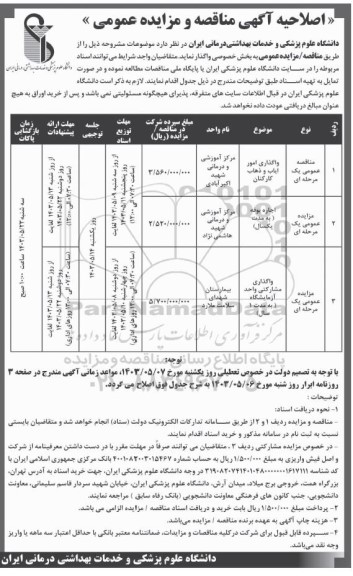 « اصلاحیه آگهی مناقصه و مزایده عمومی »
دانشگاه علوم پزشکی و خدمات بهداشتی درمانی ایران در نظر دارد موضوعات مشروحه ذیل را از
طریق مناقصه/مزایده عمومی به بخش خصوصی واگذار نماید. متقاضیان واجد شرایط می توانند اسناد
مربوطه را در سایت دانشگاه علوم پزشکی ایران یا پایگاه ملی مناقصات مطالعه نموده و در صورت
تمایل به تهیه اسناد طبق توضیحات مندرج در ذیل جدول اقدام نمایند. لازم به ذکر است دانشگاه
علوم پزشکی ایران در قبال اطلاعات سایت های متفرقه، پذیرای هیچگونه مسئولیتی نمی باشد و پس از خرید اوراق به هیچ
عنوان مبالغ دریافتی عودت داده نخواهد شد.
ردیف نوع موضوع نام واحد مبلغ سپرده شرکت در مناقصه / مزایده (ریال) مهلت توزیع اسناد جلسه توجیهی مهلت ارائه پیشنهادات زمان بازگشایی پاکات
۱ مناقصه عمومی یک مرحله ای واگذاری امور ایاب و ذهاب کارکنان مرکز آموزشی و درمانی شهید اکبرآبادی ۳/۵۶۰/۰۰۰/۰۰۰
۲ مزایده عمومی یک مرحله ای اجاره بوفه (به مدت یکسال) مرکز آموزشی و درمانی شهید هاشمی نژاد ۲/۵۲۰/۰۰۰/۰۰۰
۳ مزایده عمومی یک مرحله ای واگذاری مشارکتی واحد آزمایشگاه (به مدت ۱ سال) بیمارستان شهدای سلامت ملارد ۵/۷۰۰/۰۰۰/۰۰۰
توجه:
با توجه به تصمیم دولت در خصوص تعطیلی روز یکشنبه مورخ ۱۴۰۳/۰۵/۰۷، مواعد زمانی آگهی مندرج در صفحه ۳
روزنامه ابرار روز شنبه مورخ ۱۴۰۳/۰۵/۰۶ به شرح جدول فوق اصلاح می گردد.
توضیحات :
۱- نحوه دریافت اسناد:
- مناقصه و مزایده ردیف ۱ و ۲ از طریق سامانه تدارکات الکترونیک دولت (ستاد) انجام خواهد شد و متقاضیان بایستی
نسبت به ثبت نام در سامانه مذکور و خرید اسناد اقدام نمایند.
- در خصوص مزایده مشارکتی ردیف ۳ ، متقاضیان می توانند صرفاً در مهلت مقرر با در دست داشتن معرفینامه از شرکت
و اصل فیش واریزی به مبلغ ۱/۵۰۰/۰۰۰ ریال به حساب شماره
در وجه دانشگاه علوم پزشکی ایران، جهت خرید اسناد به آدرس تهران،
بزرگراه همت، خروجی برج میلاد، میدان آرش، دانشگاه علوم پزشکی ایران، خیابان شهید سردار قاسم سلیمانی، معاونت
دانشجویی، جنب کانون های فرهنگی معاونت دانشجویی (بانک رفاه سابق ) مراجعه نمایند.
۲- پرداخت مبلغ ۱/۵۰۰/۰۰۰ ریال بابت خرید و دریافت اسناد مناقصه / مزایده الزامی می باشد.
۳- هزینه چاپ آگهی به عهده برنده مناقصه / مزایده می باشد.
۴- سپرده قابل قبول برای شرکت در کلیه مناقصات و مزایدات، ضمانتنامه معتبر بانکی با حداقل اعتبار سه ماهه یا واریز
وجه نقد می باشد.
دانشگاه علوم پزشکی و خدمات بهداشتی درمانی ایران